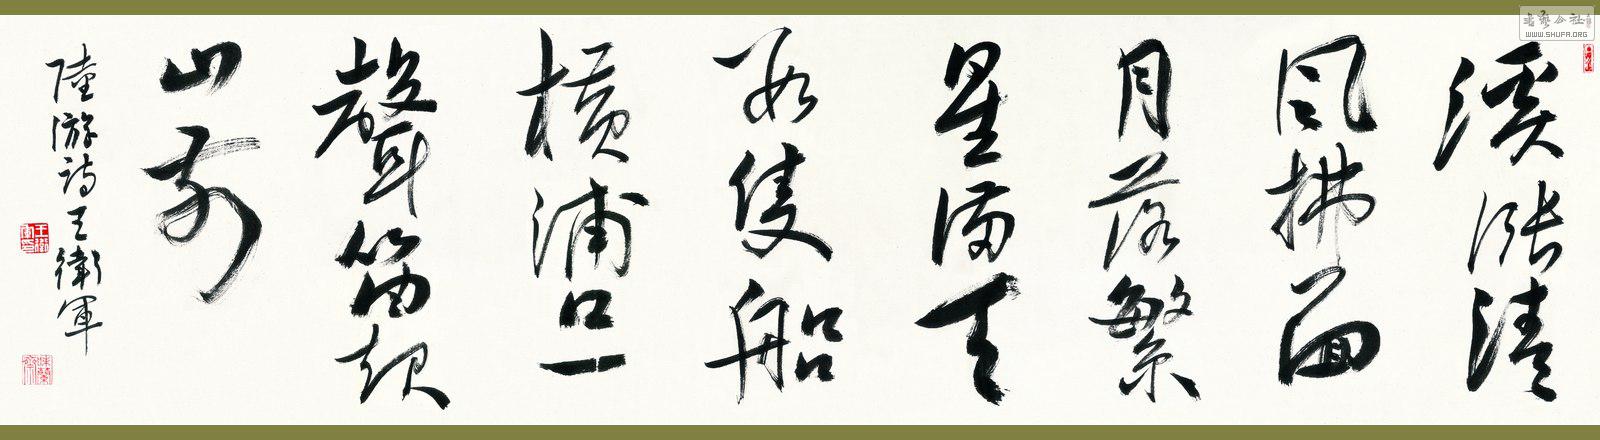 溪漲清
風拂面
月落繁
星滿天
數隻船
橫浦口一
聲笛起
山前
陸游詩王衛軍
書藝公社
WWW.SHUFA.ORG